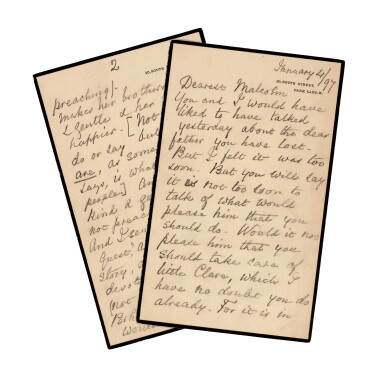 2
preaching].
makes her brothers
gentle & her
happier. [Not
do or lay but
are, as some
says, is what
people] An
kind &
not preac
And I
Guest,
Story,
devote
not
January 4/97
10, SOUTH STREET,
PARK LANE. W.
Dearest Malcolm
You and I would have
liked to have talked
yesterday about the dear
father you have lost.
But I felt it was too
soon. But you will say
it is not too soon to
talk of what would
please him that you
should do. Would it not
please him that you
should take care of
little Clare, which I
have no doubt you do
already. For it is in